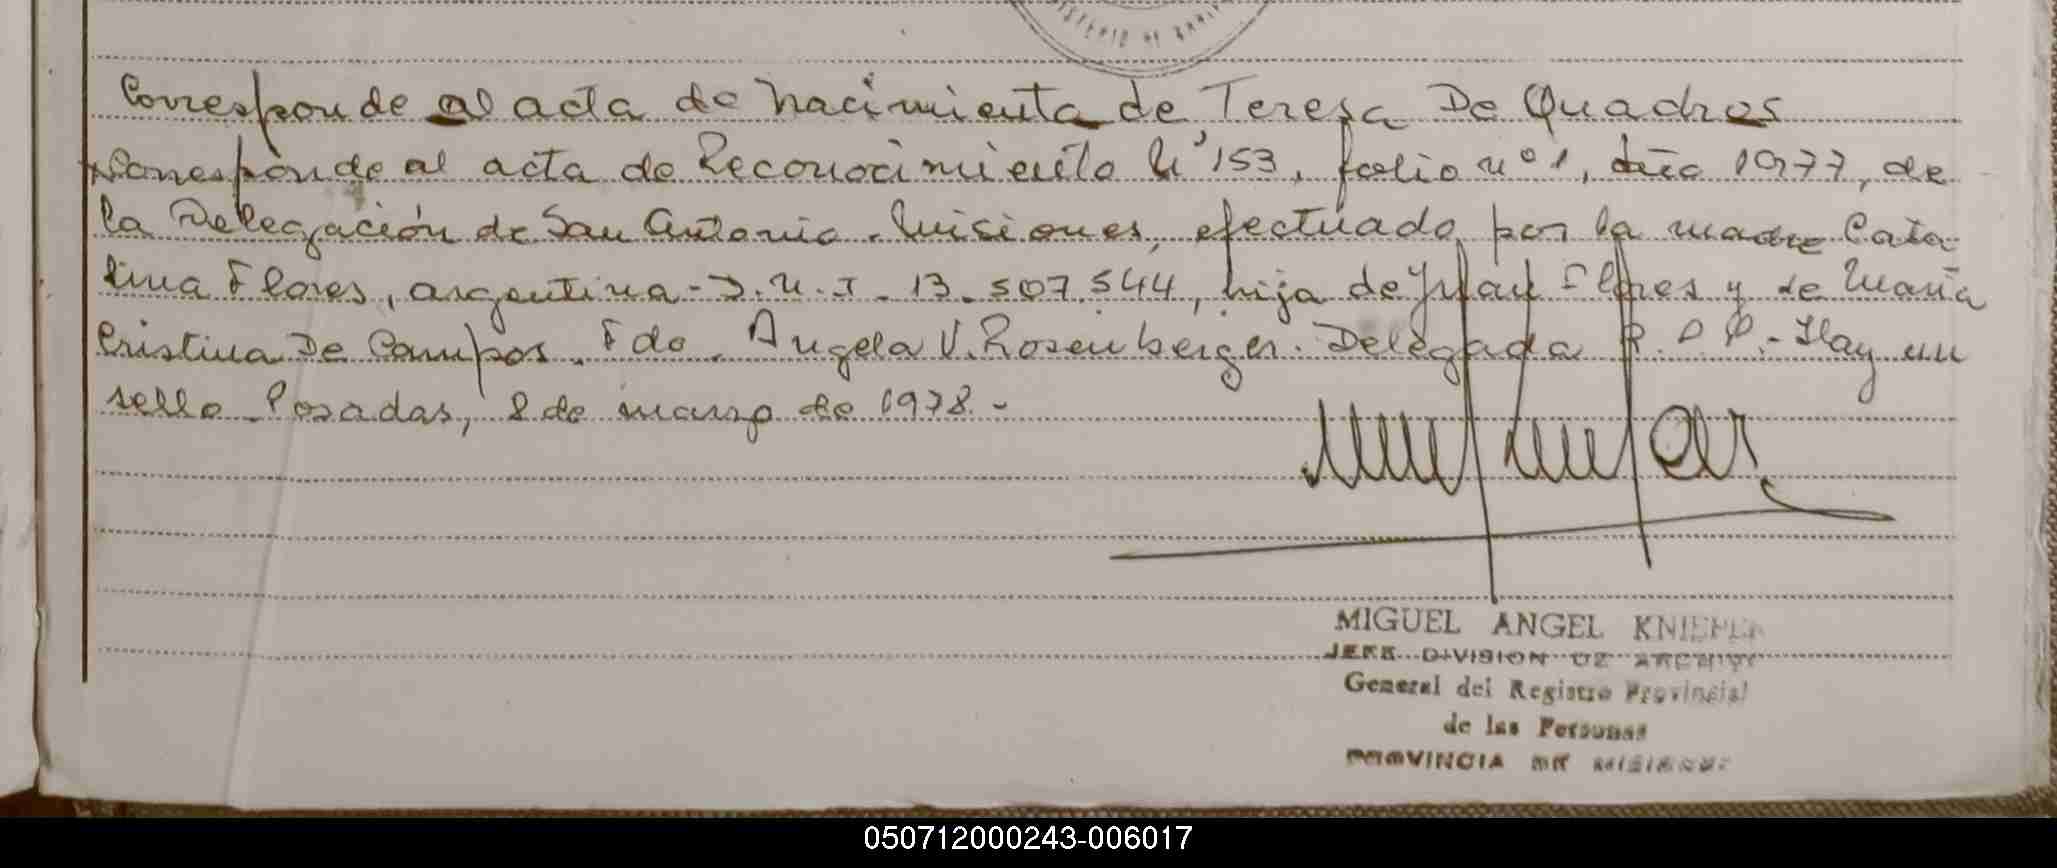 Corresponde al acta de nacimiento de Teresa De Quadros
Corresponde al acta de Reconocimiento Nº 153, folio nº 1, año 1977, de
la Delegación de San Antonio - Misiones, efectuado por la madre Cata-
lina Flores, argentina - D.N.I - 13.507.544, hija de Juan Flores y de María
Cristina De Campos. Fdo. Angela V. Rosenberger. Delegada R.P.P. - Hay un
sello - Posadas, 8 de marzo de 1978 -
MIGUEL ANGEL
JEFE DIVISION DE ARCHIVO
General del Registro Provincial
de las Personas
PROVINCIA DE MISIONES
050712000243-006017